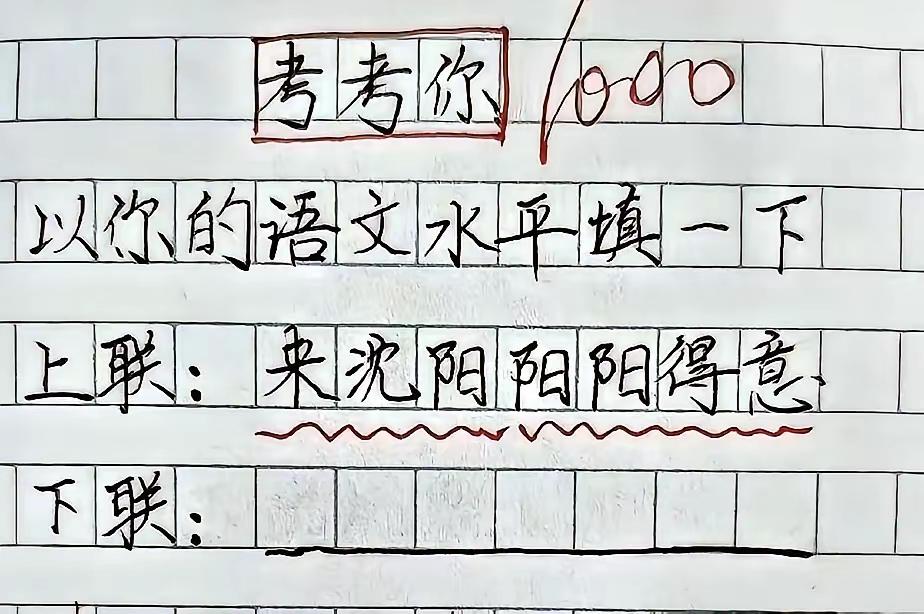 考考你 1000
以你的语文水平填一下
上联：来沈阳阳阳得意
下联：